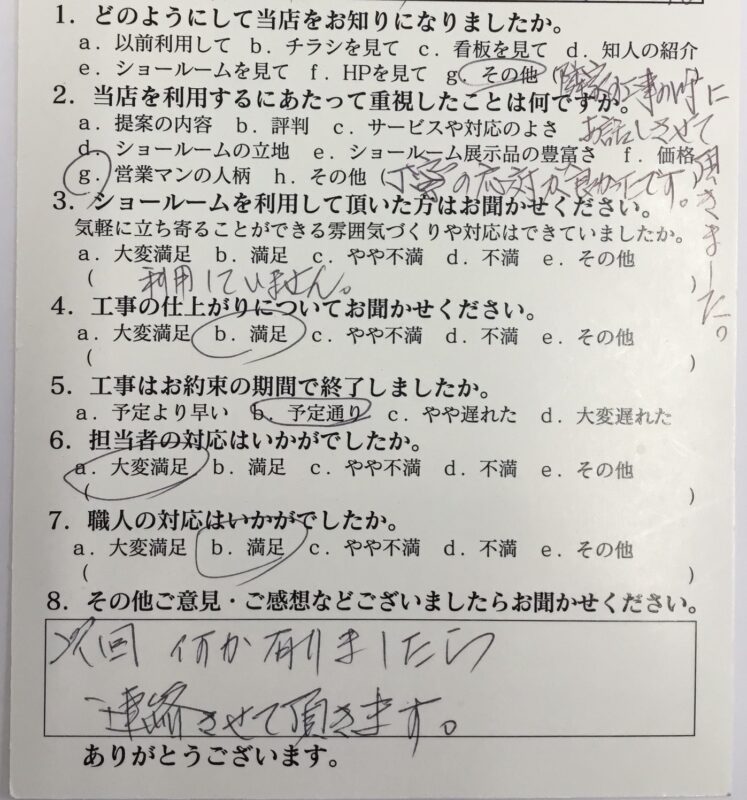 1．どのようにして当店をお知りになりましたか。
a．以前利用して b．チラシを見て c．看板を見て d．知人の紹介
e．ショールームを見て f．HPを見て g．その他（隣家の工事の時に
お話しさせて
頂きました。
2．当店を利用するにあたって重視したことは何ですか。
a．提案の内容 b．評判 c．サービスや対応のよさ
d．ショールームの立地 e．ショールーム展示品の豊富さ f．価格
g．営業マンの人柄 h．その他（丁寧の応対が良かったです。
3．ショールームを利用して頂いた方はお聞かせください。
気軽に立ち寄ることができる雰囲気づくりや対応はできていましたか。
a．大変満足 b．満足 c．やや不満 d．不満 e．その他
（ 利用していません。 ）
4．工事の仕上がりについてお聞かせください。
a．大変満足 b．満足 c．やや不満 d．不満 e．その他
（ ）
5．工事はお約束の期間で終了しましたか。
a．予定より早い b．予定通り c．やや遅れた d．大変遅れた
6．担当者の対応はいかがでしたか。
a．大変満足 b．満足 c．やや不満 d．不満 e．その他
（ ）
7．職人の対応はいかがでしたか。
a．大変満足 b．満足 c．やや不満 d．不満 e．その他
（ ）
8．その他ご意見・ご感想などございましたらお聞かせください。
次回 何か有りましたら
連絡させて頂きます。
ありがとうございます。